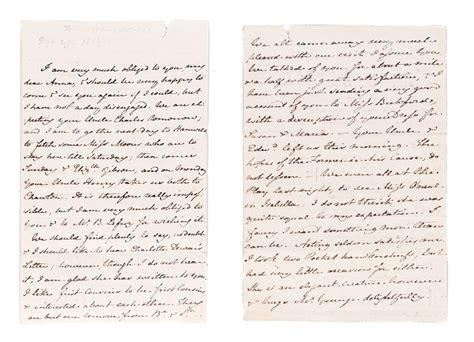 I am very much obliged to you my
dear Anna, & should be very happy to
come & see you again if I could, but
I have not a day disengaged. We are ex
pecting your Uncle Charles tomorrow;
and I am to go the next day to Hanwell
to fetch some Miss Moores who are to
stay here till Saturday; then come
Sunday & Eliz:th Gibson, and on Monday
Your Uncle Henry takes us both to
Chawton. It is therefore really impos-
sible, but I am very much obliged to
You & to Mr B. Lefroy for wishing it.
We should find plenty to say, no doubt,
& I should like to hear Charlotte Dewar's
Letter; however, though I do not hear
it, I am glad she has written to you.
I like first Cousins to be first Cousins
& interested about each other. They
are but one remove from Br & Sr.
We all came away very much
pleased with our visit I assure You.
We talked of you for about a mile
& a half with great satisfaction, & I
have been just sending a very good
account of you to Miss Beckford,
with a description of your Dress for
Susan & Maria. Your Uncle &
Edwd left us this morning. The
hopes of the Former in his Cause, do
not lessen. We were all at the
Play last night, to see Miss O'neal
in Isabella. I do not think she was
quite equal to my expectation. I
fancy I want something more than
can be. Acting seldom satisfies me.
I took two Pocket handkerchiefs, but
had very little occasion for either.
She is an elegant creature however
& hugs Mr Younge delightfully.